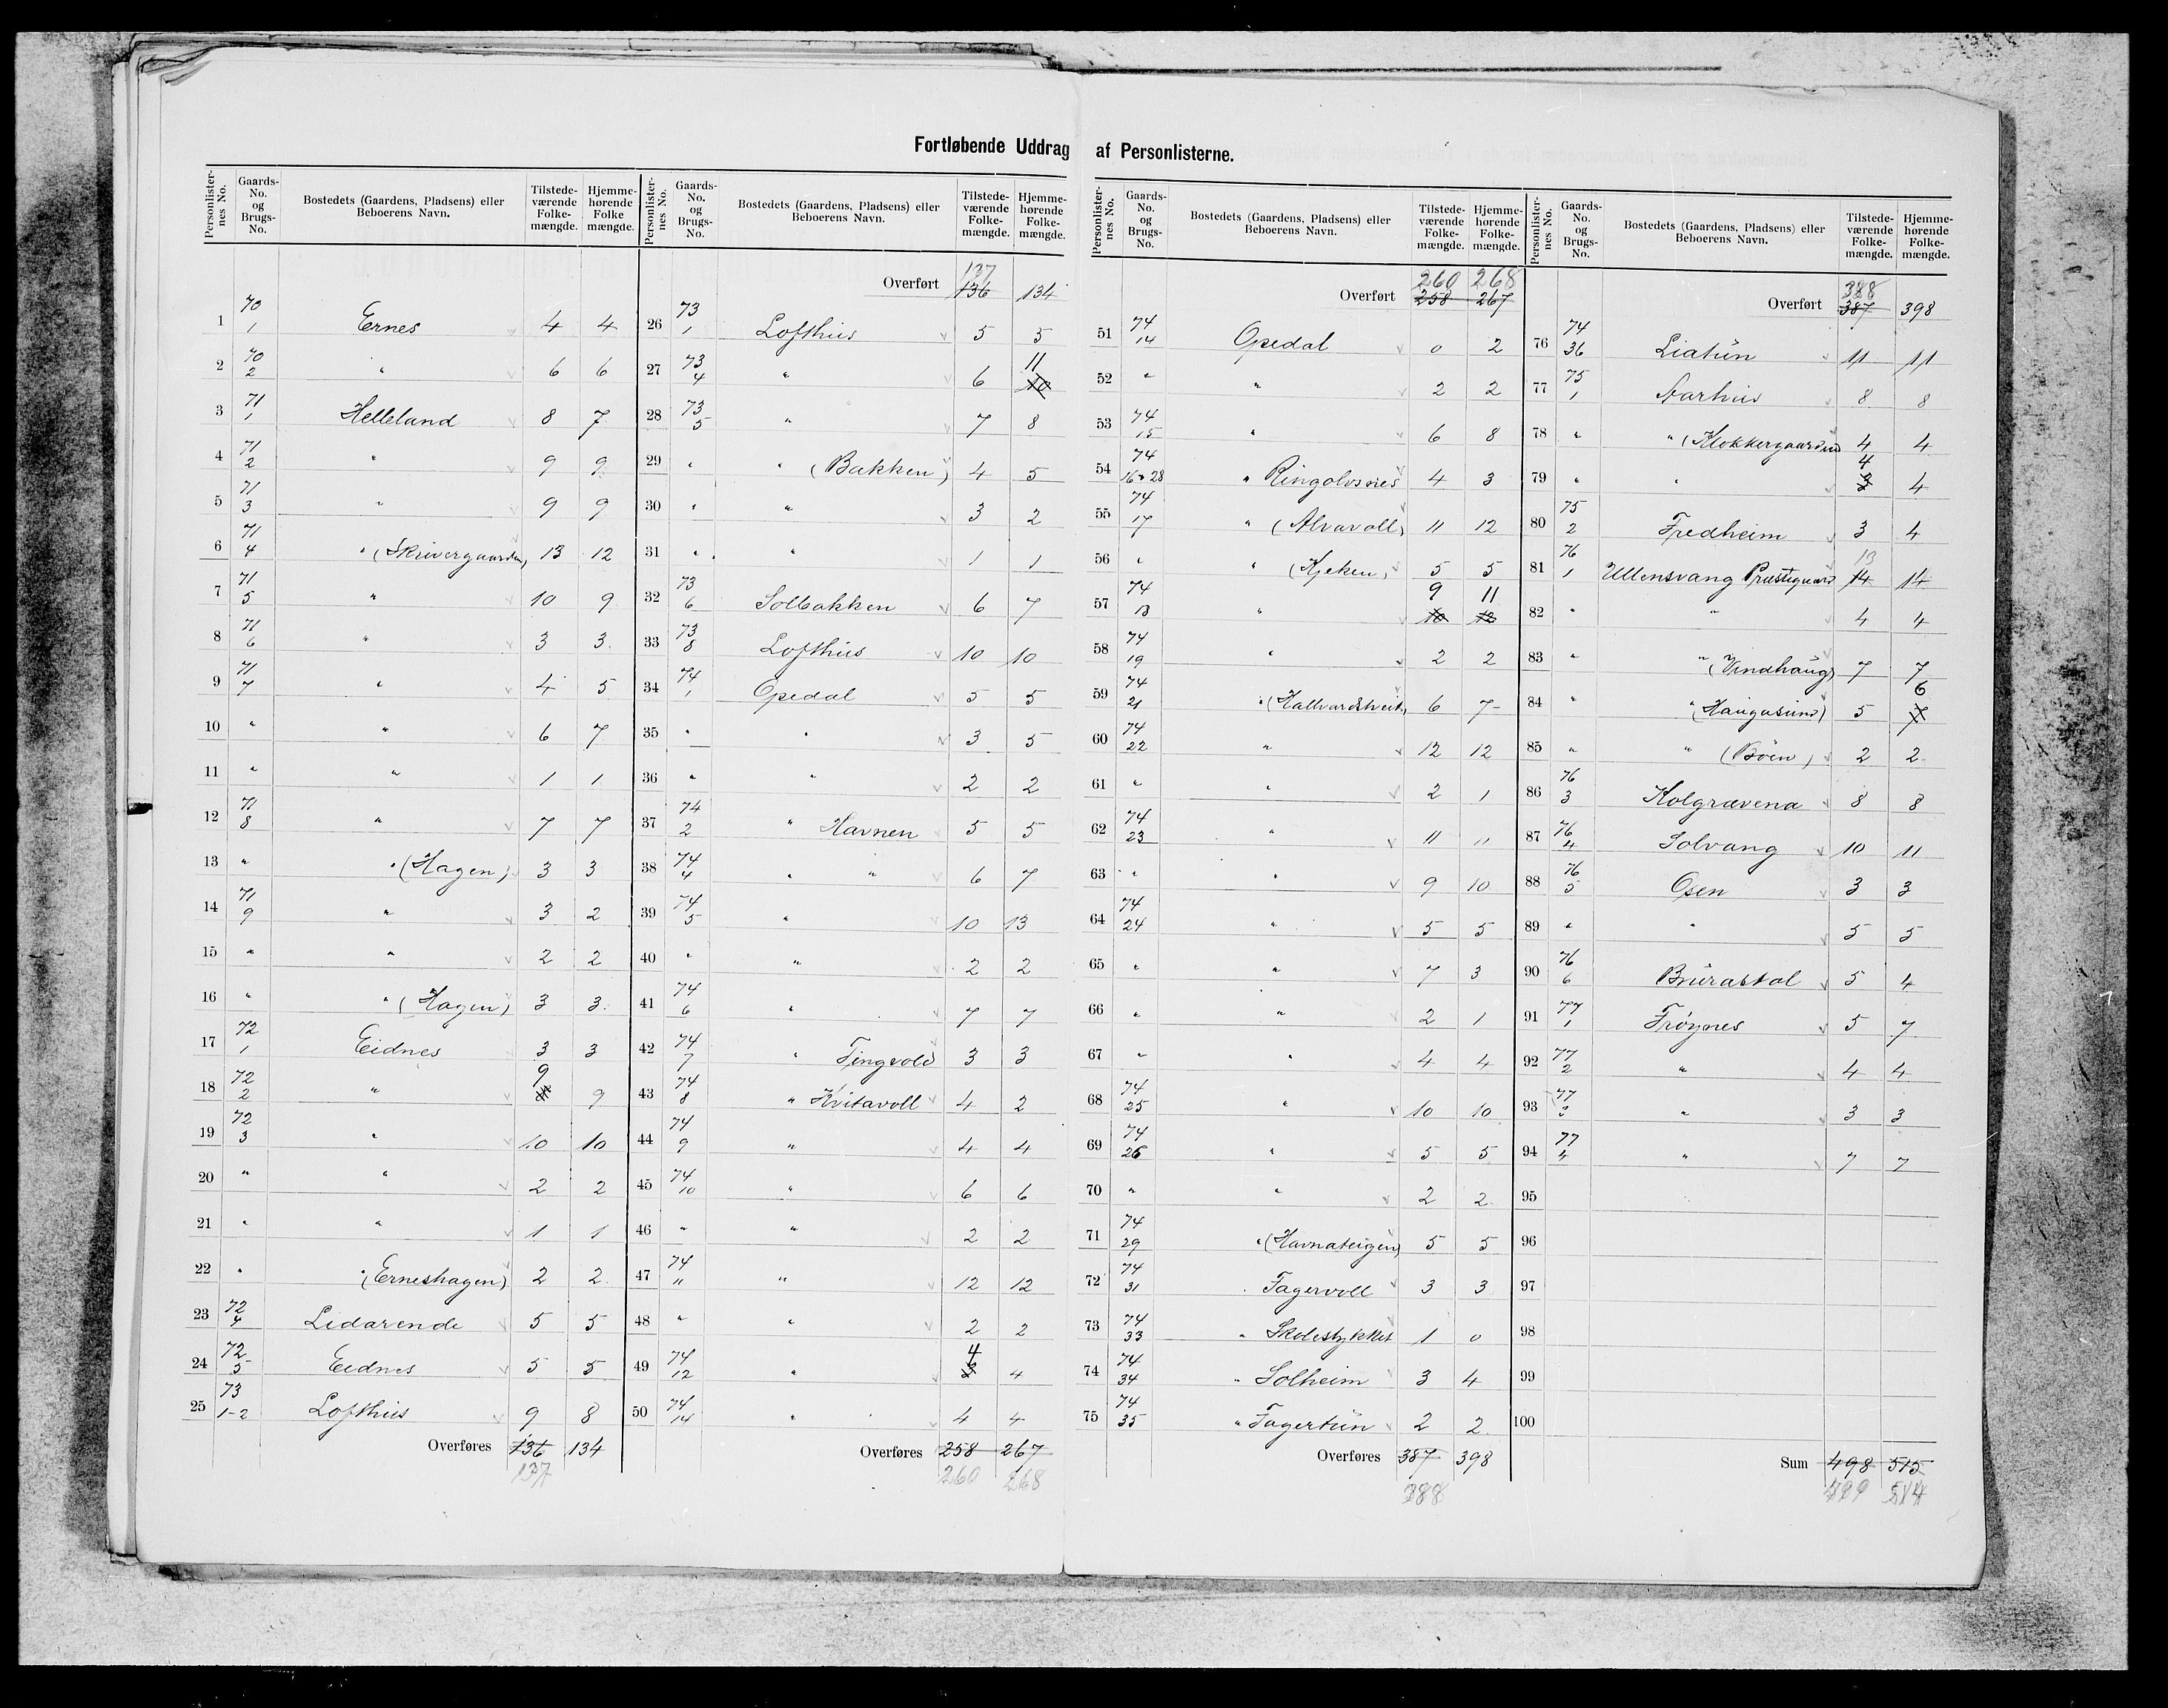 Fortløbende Uddrag af Personlisterne.
Personlister-nes No. Gaards-No. og Brugs-No. Bostedets (Gaardens, Pladsens) eller Beboerens Navn. Tilstede-værende Folke-mængde. Hjemme-hørende Folke mængde.
1 70/1 Ernes 4 4
2 70/2 " 6 6
3 71/1 Helleland 8 7
4 71/2 " 9 9
5 71/3 " 9 9
6 71/4 " (Skrivergaarden) 13 12
7 71/5 " 10 9
8 71/6 " 3 3
9 71/7 " 4 5
10 " " 6 7
11 " " 1 1
12 71/8 " 7 7
13 " " (Hagen) 3 3
14 71/9 " 3 2
15 " " 2 2
16 " " (Hagen) 3 3
17 72/1 Eidnes 3 3
18 72/2 " 9 9
19 72/3 " 10 10
20 " " 2 2
21 " " 1 1
22 " " (Erneshagen) 2 2
23 72/4 Lidarende 5 5
24 72/5 Eidnes 5 5
25 73/1-2 Lofthus 9 8
Overføres 136 134
137
Personlister-nes No. Gaards-No. og Brugs-No. Bostedets (Gaardens, Pladsens) eller Beboerens Navn. Tilstede-værende Folke-mængde. Hjemme-hørende Folke-mængde.
137
Overført 136 134
26 73/1 Lofthus 5 5
27 73/4 " 6 11 10
28 73/5 " 7 8
29 " " (Bakken) 4 5
30 " " 3 2
31 " " 1 1
32 73/6 Solbakken 6 7
33 73/8 Lofthus 10 10
34 74/1 Opedal 5 5
35 " " 3 5
36 " " 2 2
37 74/2 " Havnen 5 5
38 74/4 " " 6 7
39 74/5 " 10 13
40 " " 2 2
41 74/6 " 7 7
42 74/7 " Tingvold 3 3
43 74/8 " Kvitavoll 4 2
44 74/9 " 4 4
45 74/10 " 6 6
46 " " 2 2
47 74/11 " 12 12
48 " " 2 2
49 74/12 " 4 3 4
50 74/14 " 4 4
Overføres 258 267
260 268
Personlister-nes No. Gaards-No. og Brugs-No. Bostedets (Gaardens, Pladsens) eller Beboerens Navn. Tilstede-værende Folke-mængde. Hjemme-hørende Folke-mængde.
260 268
Overført 258 267
51 74/14 Opedal 0 2
52 " " 2 2
53 74/15 " 6 8
54 74/16 28 " Ringolvsnes 4 3
55 74/17 " (Alvavoll) 11 12
56 " " (Kjeken) 5 5
57 74/18 " 9 10 11 12
58 74/19 " 2 2
59 74/21 " (Hallvardstveit) 6 7
60 74/22 " 12 12
61 " " 2 1
62 74/23 " 11 11
63 " " 9 10
64 74/24 " 5 5
65 " " 7 3
66 " " 2 1
67 " " 4 4
68 74/25 " 10 10
69 74/26 " 5 5
70 " " 2 2
71 74/29 " (Havnateigen) 5 5
72 74/31 " Fagervoll 3 3
73 74/33 " Skolestykket 1 0
74 74/34 " Solheim 3 4
75 74/35 " Fagertün 2 2
Overføres 387 398
388
Personlister-nes No. Gaards-No. og Brugs-No. Bostedets (Gaardens, Pladsens) eller Beboerens Navn. Tilstede-værende Folke-mængde. Hjemme-hørende Folke-mængde.
388
Overført 387 398
76 74/36 Liatün 11 11
77 75/1 Aarhus 8 8
78 " " (Klokkergaarden) 4 4
79 " " 4 3 4
80 75/2 Fredheim 3 4
81 76/1 Ullensvang Præstegaard 13 14 14
82 " " 4 4
83 " " (Vindhaug) 7 7
84 " " (Haugasund) 5 6 7
85 " " (Böen) 2 2
86 76/3 Kolgravena 8 8
87 76/4 Solvang 10 11
88 76/5 Osen 3 3
89 " " 5 5
90 76/6 Brurastol 5 4
91 77/1 Frøynes 5 7
92 77/2 " 4 4
93 77/3 " 3 3
94 77/4 " 7 7
95
96
97
98
99
100
Sum 498 515
499 514